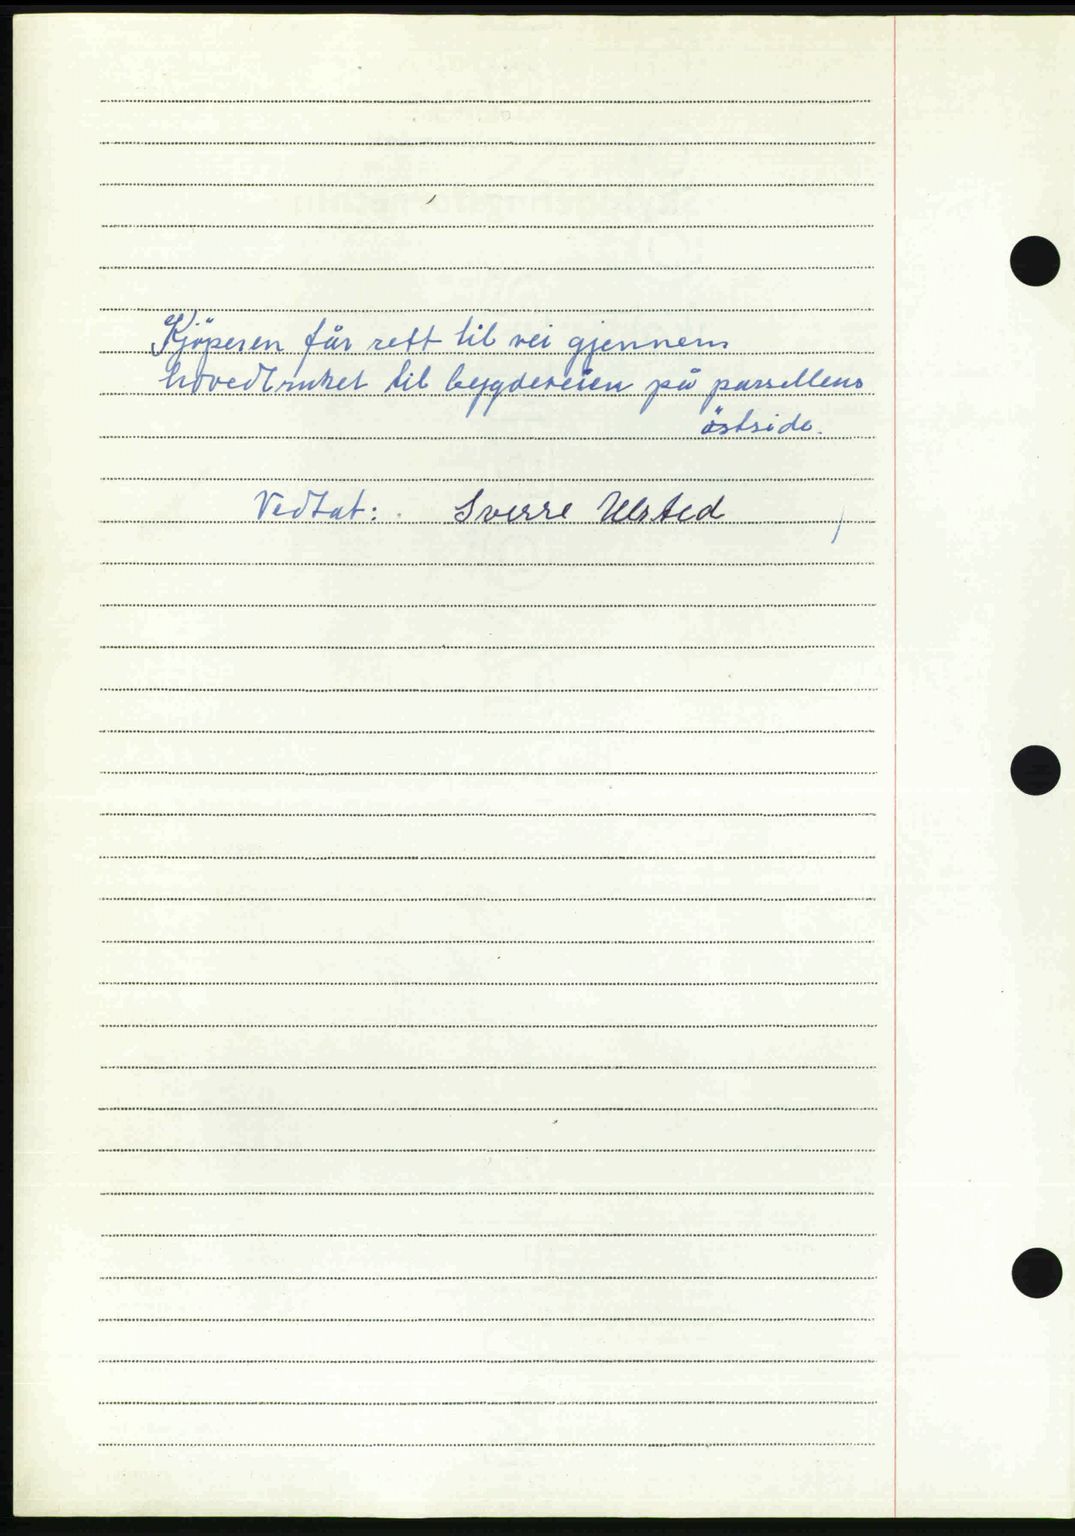 Kjöperen får rett til vei gjennem
hovedbruket til bygdeveien på parsellens
östside.
Vedtat: Sverre Ulsted